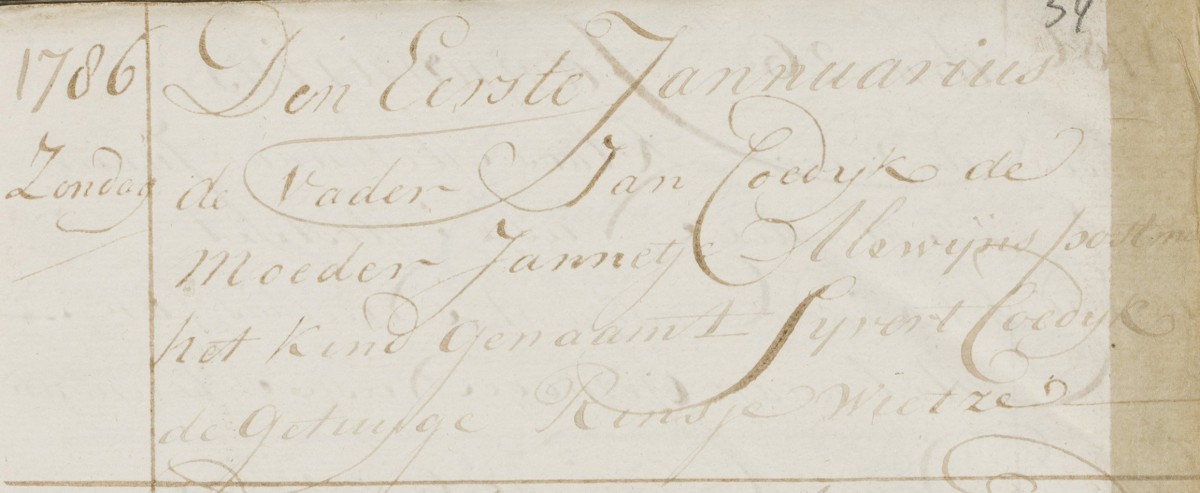 54
1786 Den Eerste Jannuarius
Zondag de Vader Jan Coedijk de
Moeder Jannetje Alewijns postma
het Kind genaamt Syvert Coedijk
de Getuyge Rinsje Wietze